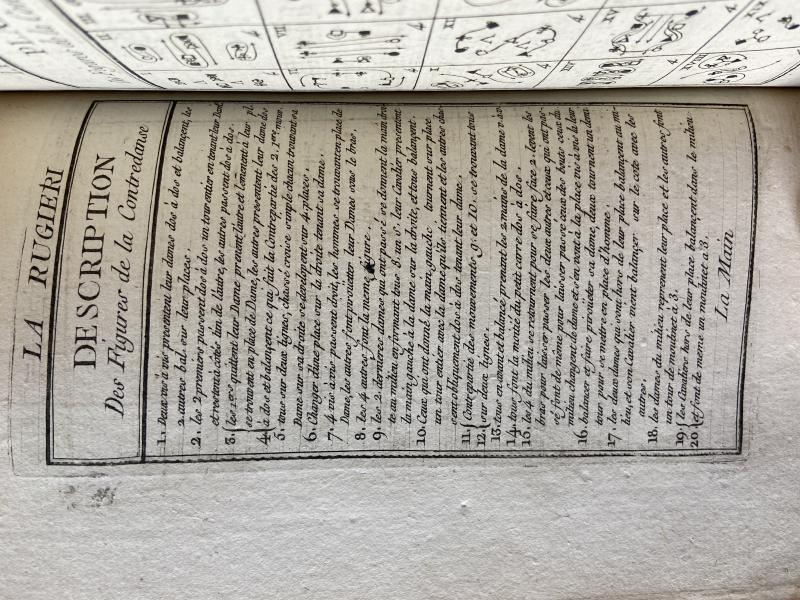 LA RUGIERI
DESCRIPTION
Des Figures de la Contredanse
1. Deux vis à vis presentent leur dames dos à dos et balançent, les
2 autres bal. sur leur places.
2. les 2 premiers passent dos à dos un tour entier en tenant leur
et restent à côtés l'un de l'autre, les autres passent dos à dos.
3. les 2 ers quittent leur Dame prenent l'autre et lemenent à leur pl.
se trouvent en place de Dame, les autres presentent leur dame dos
4. à dos et balançent ce qui fait la Contrepartie des 2. 1ers mouv.
5. tous sur deux lignes, chassé croisé simple chacun trouvant sa
Dame sur sa droite se dévelopent sur 4 places.
6. Changer d'une place sur la droite tenant sa dame.
7. 4 vis à vis passent droit, les hommes se trouvant en place de
Dame, les autres font pirouëtter leur Dames sous le bras.
8. les 4 autres font la meme figure.
9. les 2 dernieres dames qui ont passé se donnent la main
te au milieu en formant tous 8. un 8. leur Cavalier presentent
la main gauche à la dame sur la droite, et tous balançent
10. Ceux qui ont donné la main gauche tournent sur place
un tour entier avec la dame qu'ils tiennent et les autres
sent obliquement dos à dos tenant leur dame.
11. Contrepartie des mouvements 9. et 10. se trouvant tous
12. sur deux lignes.
13. tous en avant et balancée prenant les 2 mains de la dame v. à v.
14. tous font la moitié du petit carré dos à dos.
15. les 4 du milieu se retournent pour se faire face 2. levent les
bras pour laisser passer les deux autre et ceux qui ont
et font de même pour laisser passe ceux des bouts ceux du
milieu changent de dame et s'en vont à la place vis à vis la leur
16. balancer et faire pirouëter sa dame, deux tournent un demi
tour pour se mettre en place d'homme.
17. les deux dames qui sont hors de leur place balançent au mi-
lieu, et son Cavalier vient balançer sur le coté avec les
autres.
18. les dames du milieu reprenent leur place et les autres font
un tour de moulinet à 3.
19. les Cavaliers hors de leur place balançent dans le milieu
20 et font de meme un moulinet à 3.
La Main